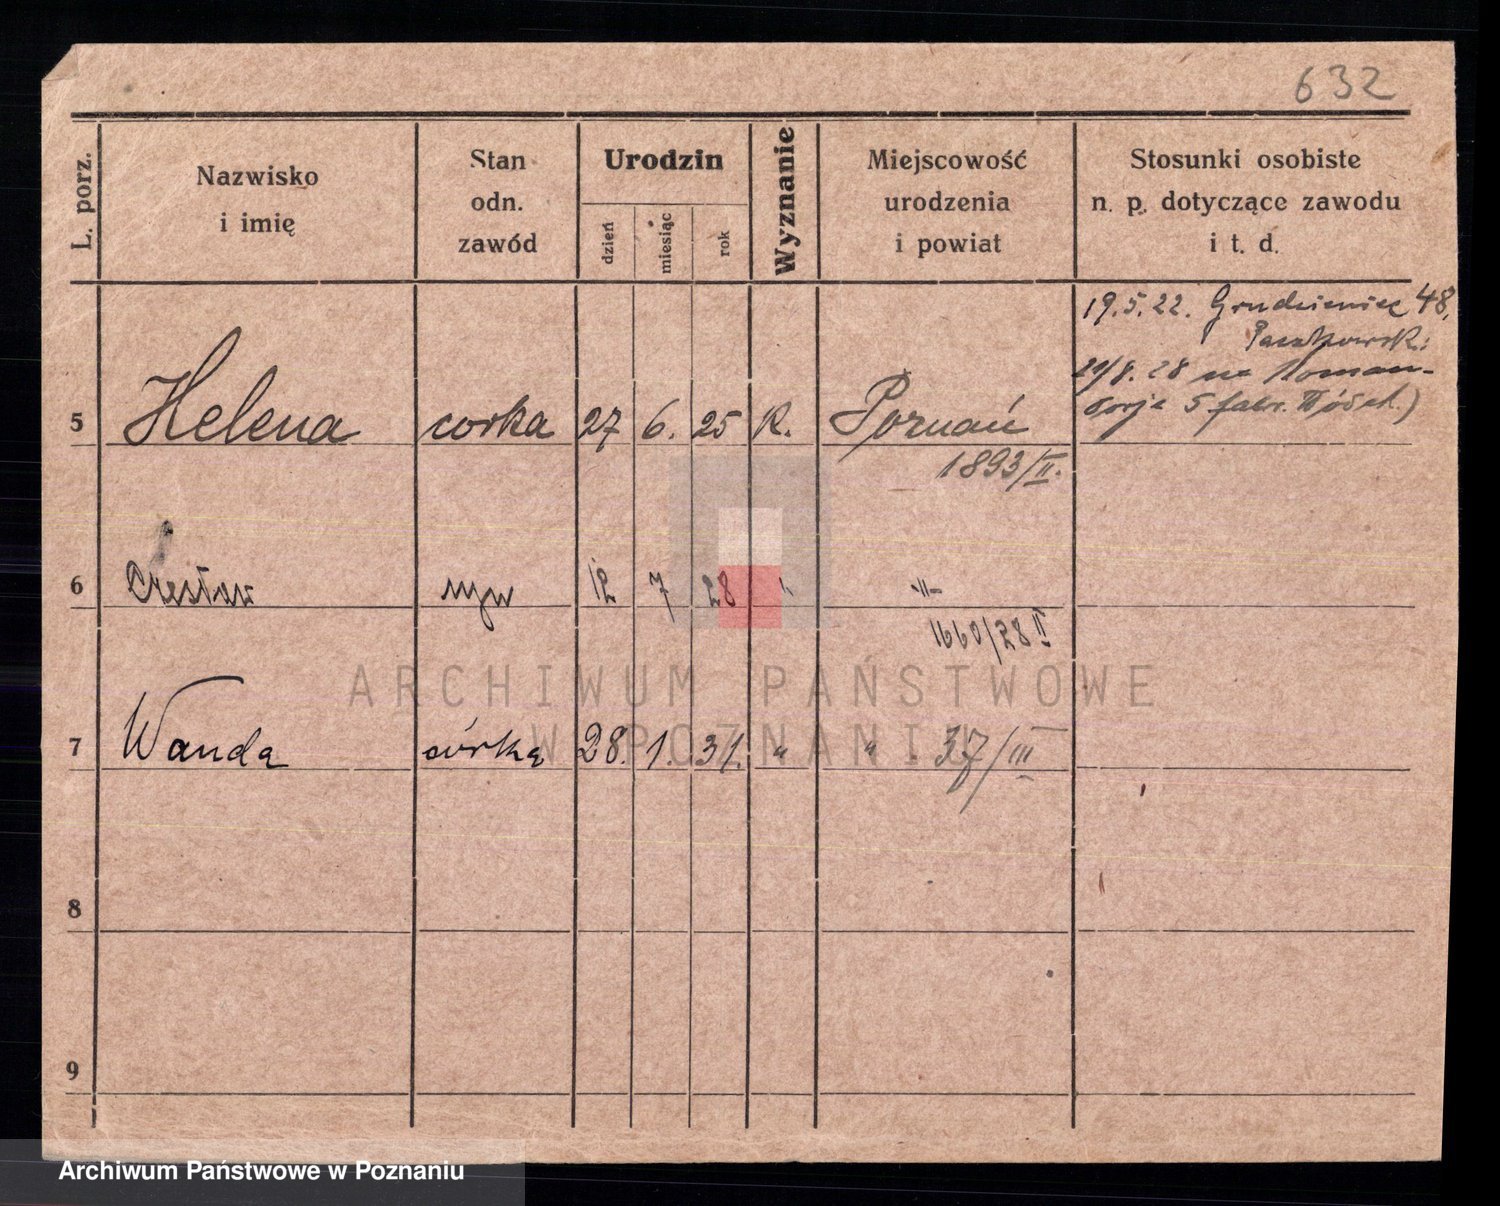 632
L. porz.
Nazwisko
i imię
Stan
odn.
zawód
Urodzin
dzień
miesiąc
rok
Wyznanie
Miejscowość
urodzenia
i powiat
Stosunki osobiste
n. p. dotyczące zawodu
i t. d.
19.5.22. Grudzieniec 48,
Paczkowsk.
29/8.28 na Koman-
dorję 5
5 Helena corka 27 6. 25 R. Poznań
1893/II.
6 Czesław syn 12 7 28 " -"-
1660/28 II
7 Wanda córka 28. 1. 31. " " 37/III
8
9
ARCHIWUM PAŃSTWOWE
W POZNANIU
Archiwum Państwowe w Poznaniu